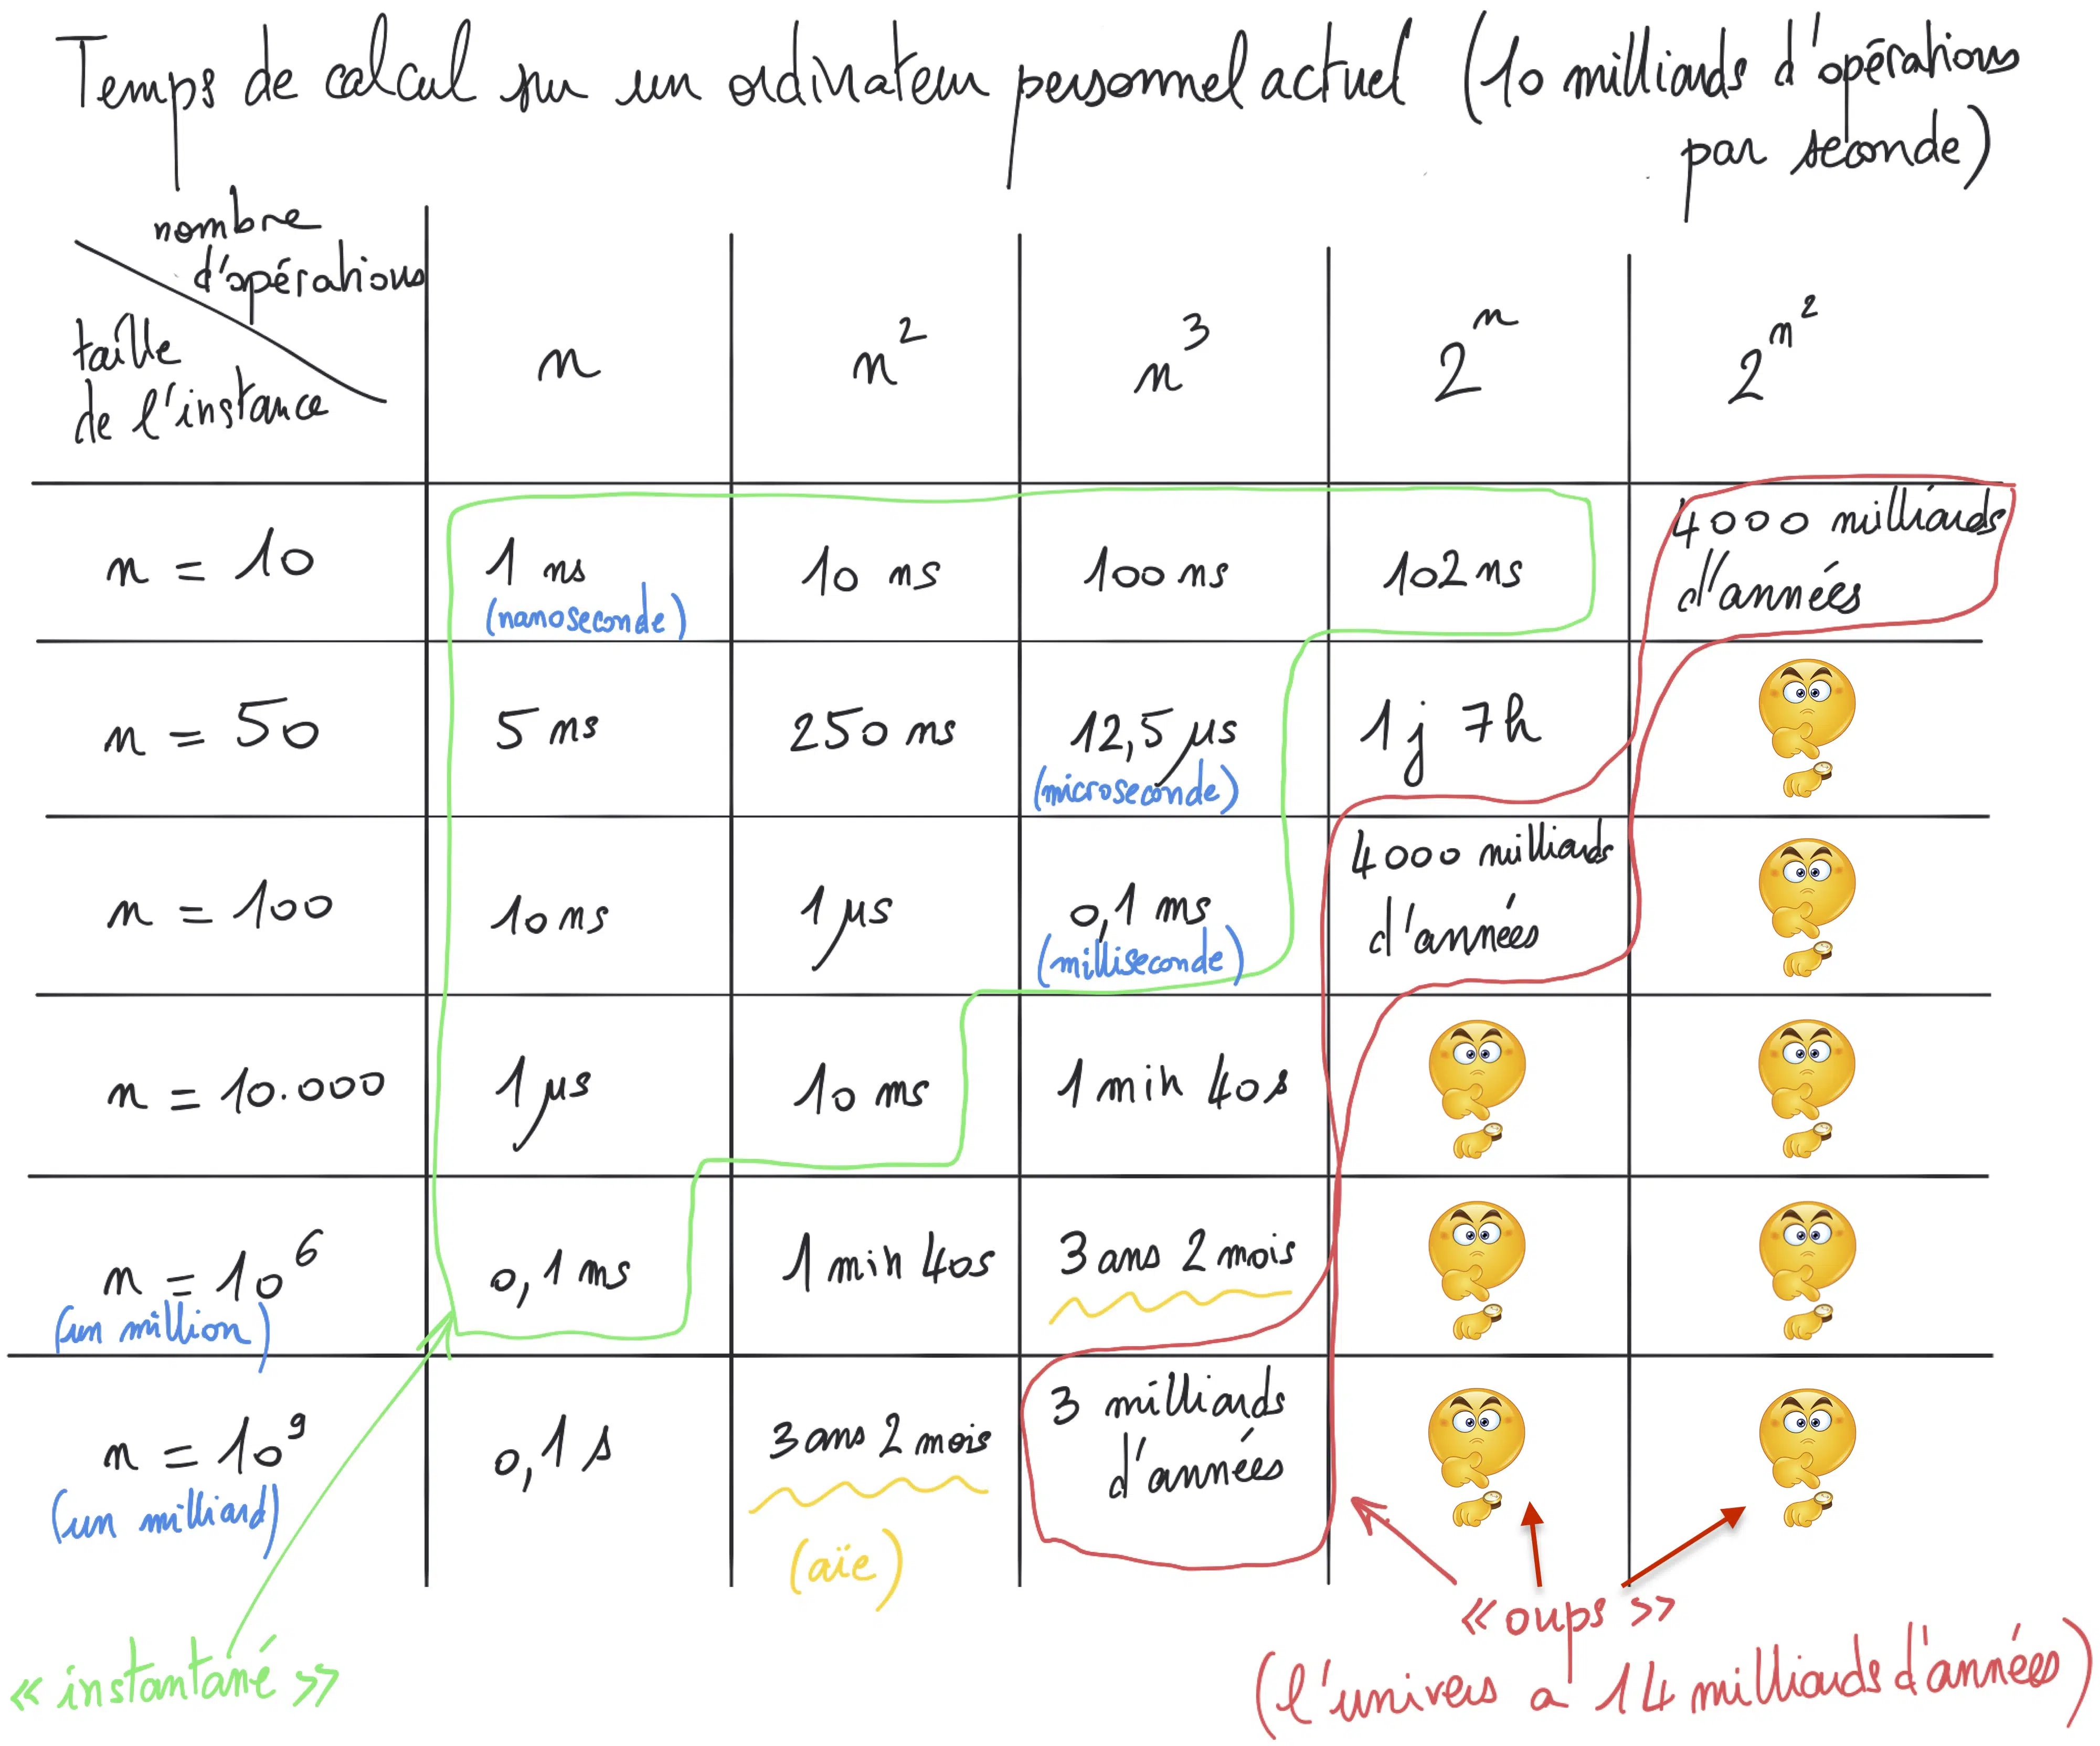 Temps de calcul sur un ordinateur personnel actuel (10 milliards d'opérations
par seconde)
nombre
d'opérations
taille
de l'instance
n
n²
n³
2ⁿ
2^n²
n = 10
1 ns
(nanoseconde)
10 ns
100 ns
102 ns
4000 milliards
d'années
n = 50
5 ns
250 ns
12,5 µs
(microseconde)
1j 7h
n = 100
10 ns
1 µs
0,1 ms
(milliseconde)
4000 milliards
d'années
n = 10.000
1 µs
10 ms
1 min 40s
n = 10⁶
(un million)
0,1 ms
1 min 40s
3 ans 2 mois
n = 10⁹
(un milliard)
0,1 s
3 ans 2 mois
(aïe)
3 milliards
d'années
« instantané »
« oups »
(l'univers a 14 milliards d'années)